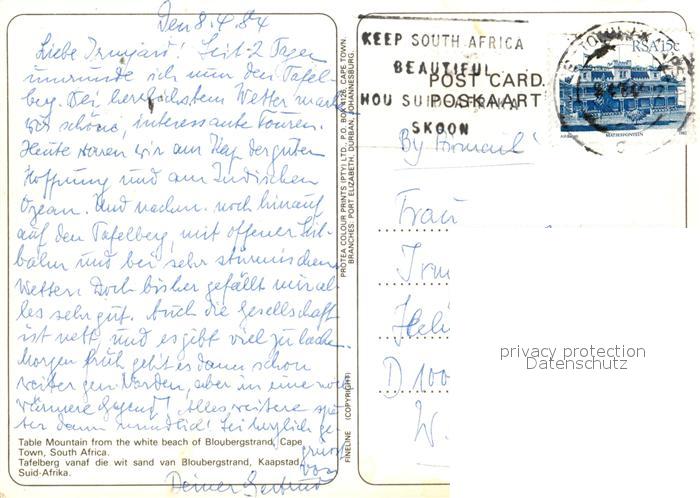 Den 8.4.84
Liebe Irmgard! Seit 2 Tagen
umrunde ich nun den Tafel-
berg. Bei herrlichstem Wetter machen
wir schöne, interessante Touren.
Heute waren wir am Kap der guten
Hoffnung und am Indischen
Ozean. Und nachm. noch hinauf
auf den Tafelberg, mit offener Seil-
bahn und bei sehr stürmischem
Wetter. Doch bisher gefällt mir al-
les sehr gut. Auch die Gesellschaft
ist nett, und es gibt viel zu lachen.
Morgen früh geht es dann schon
weiter gen Norden, aber in eine noch
wärmere Gegend! Alles weitere spä-
ter dann mündlich! Sei herzlich ge-
grüßt
von
Deiner Gertrud
Table Mountain from the white beach of Bloubergstrand, Cape
Town, South Africa.
Tafelberg vanaf die wit sand van Bloubergstrand, Kaapstad,
Suid-Afrika.
FINELINE (COPYRIGHT)
PROTEA COLOUR PRINTS (PTY) LTD., P.O. BOX 4126, CAPE TOWN.
BRANCHES: PORT ELIZABETH, DURBAN, JOHANNESBURG.
KEEP SOUTH AFRICA
BEAUTIFUL
HOU SUID-AFRIKA
SKOON
POST CARD
POSKAART
RSA 15c
By Airmail
Frau
D 100
W.
privacy protection
Datenschutz